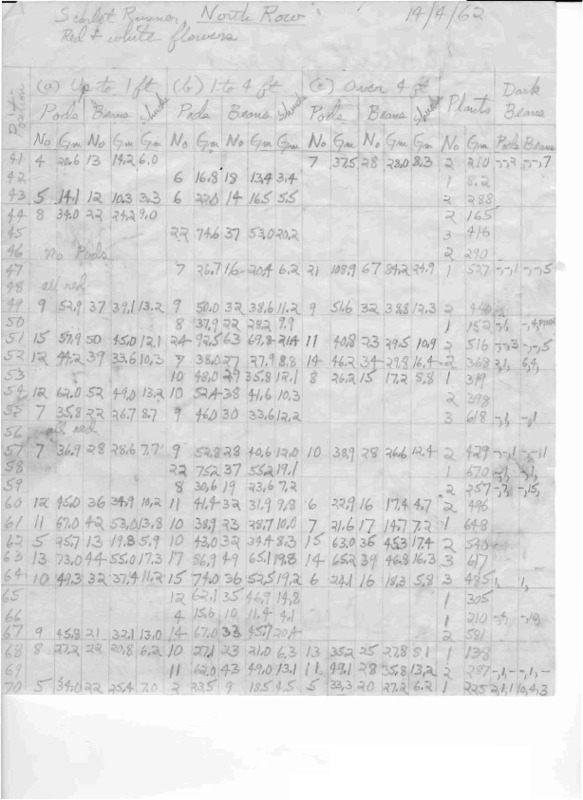 Scarlet Runner, North Row 14/4/62
Red & white flowers
(a) Up to 1 ft (b) 1 to 4 ft (c) Over 4 ft Dark
Pods Beans Shucks Pods Beans Shucks Pods Beans Shucks Plants Beans
No Gm No Gm Gm No Gm No Gm Gm No Gm No Gm Gm No Gm Pods Beans
41 4 20.6 13 14.2 6.0 7 37.5 28 28.0 8.3 2 210
42 6 16.8 18 13.4 3.4 1 8.2
43 5 14.1 12 10.3 3.3 6 22.0 14 16.5 5.5 2 288
44 8 34.0 22 24.2 9.0 2 165
45 22 74.6 37 53.0 20.2 3 416
46 No Pods 2 290
47 7 26.7 16 20.4 6.2 21 108.9 67 84.2 24.9 1 527
48 all red
49 9 52.9 37 39.1 13.2 9 50.0 32 38.6 11.2 9 51.6 32 38.8 12.3 2
50 8 37.9 22 28.2 9.9 1 152
51 15 57.9 50 45.0 12.1 24 92.5 63 69.8 21.4 11 40.8 23 29.5 10.9 2 516
52 12 44.2 39 33.6 10.3 7 38.0 27 27.9 8.8 14 46.2 34 29.8 16.4 2 368
53 10 48.0 29 35.8 12.1 8 26.2 15 17.2 8.8 1 319
54 12 62.0 52 49.0 13.2 10 52.4 38 41.6 10.3 2 398
55 7 35.8 22 26.7 8.7 9 46.0 30 33.6 12.2 3 618
56 all red
57 7 36.9 28 28.6 7.7 9 52.8 28 40.6 12.0 10 38.9 28 26.6 12.4 2 429
58 22 75.2 37 55.2 19.1 1 670
59 8 30.6 19 23.6 7.2 2 257
60 12 45.0 36 34.9 10.2 11 41.4 32 31.9 9.8 6 22.9 16 17.4 4.7 2 496
61 11 67.0 42 53.0 13.8 10 38.9 23 28.7 10.0 7 21.6 17 14.7 7.2 1 648
62 5 25.7 13 19.8 5.9 10 43.0 32 34.4 8.3 15 63.0 36 45.3 17.4 2 540
63 13 73.0 44 55.0 17.3 17 86.9 49 65.1 19.8 14 65.2 39 46.8 16.3 3 617
64 10 49.3 32 37.4 11.2 15 74.0 36 52.5 19.2 6 24.1 16 18.3 5.8 3 485
65 12 62.1 35 46.9 14.8 1 305
66 4 15.6 10 11.4 4.1 1 210
67 9 45.8 21 32.1 13.0 14 67.0 33 45.7 20.4 2 581
68 8 27.2 22 20.8 6.2 10 27.1 23 21.0 6.3 13 35.2 25 27.8 8.1 1 138
69 11 62.0 43 49.0 13.1 11 49.1 28 35.8 13.2 2 287
70 5 34.0 22 25.4 7.0 2 23.5 9 18.5 4.5 5 33.3 20 27.2 6.2 1 225 2,1,1 10,4,3